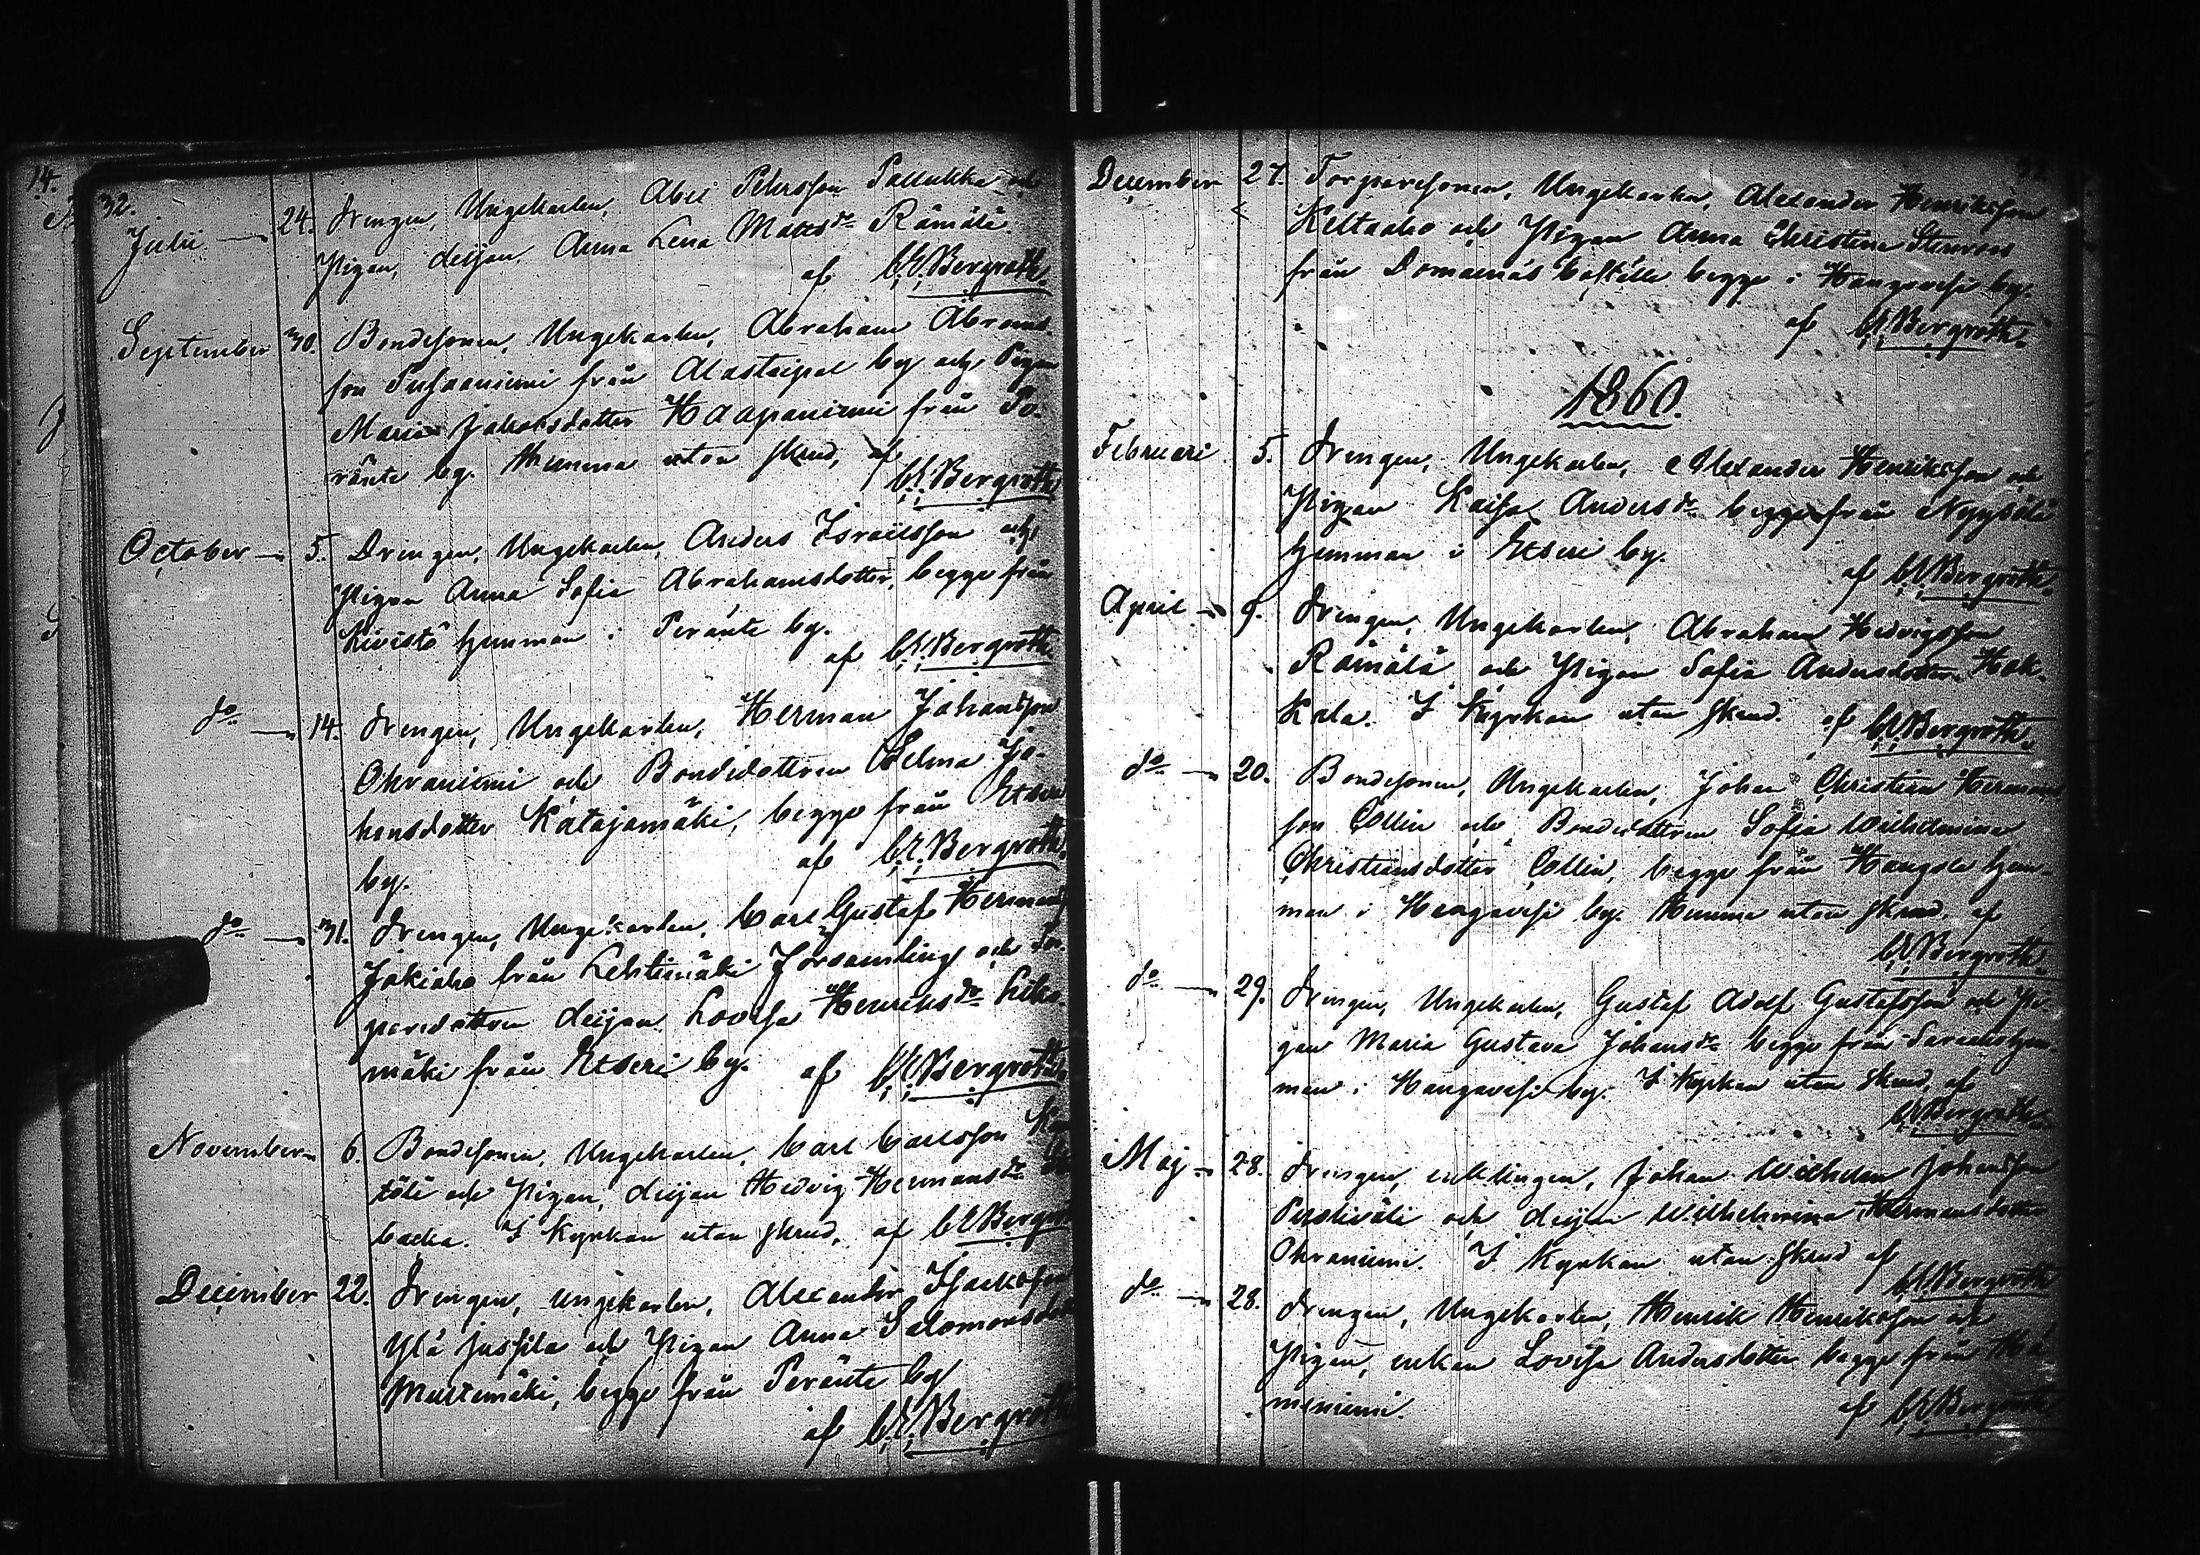 14.
32.
Julii — 24. Drengen, Ungekarlen, Abel Pehrsson Pallukka och
Pigan, deijan Anna Lena Matts dr Rämälä.
af C. E. Bergroth.
September 30. Bondesonen, Ungekarlen, Abraham Abrams-
son från Alastaipal by och Pigan
Maria Jakobsdotter Haapaniemi från Pe-
ränte by. Hemma utan skrud, af
C. E. Bergroth
October — 5. Drengen, Ungekarlen, Anders Israelsson och
Pigan Anna Sofia Abrahamsdotter, begge från
Kivistö hemman i Peränte by.
af C. E. Bergroth
do — 14. Drengen, Ungekarlen, Herman Johansson
Ohraniemi och Bondedottren Selma Jo-
hansdotter Katajamäki, begge från Etseri
by.
af C. E. Bergroth.
do — 31. Drengen, Ungekarlen, Carl Gustaf Hermans
Jokiaho från Lehtimäki Församling och Tor-
paredottren deijan Lovisa Henriks dr
mäki från Etseri by. af C. E. Bergroth
November — 6. Bondesonen, Ungekarlen, Carl Carlsson
och Pigan, deijan Hedvig Hermans dr
backa. I Kyrkan utan skrud, af C. E. Bergroth
December 22. Drengen, ungekarlen, Alexander Isaksson
Ylä Jussila och Pigan Anna Salomonsdotter
Mustemäki, begge från Peränte by
af C. E. Bergroth
December 27. Torparesonen, Ungekarlen, Alexander Henriksson
Keltaaho och Pigan Anna Christina Stenroos
från Domarnäs boställe begge i Hangavesi by.
af C. E. Bergroth.
1860.
Februari 5. Drengen, Ungekarlen, Alexander Henriksson och
Pigan Kaisa Anders dr begge från
hemman i Etseri by.
af C. E. Bergroth.
April — 9. Drengen, Ungekarlen, Abraham Hedvigsson
Rämälä och Pigan Sofia Andersdotter Hok-
kala. I Kyrkan utan skrud. af C. E. Bergroth.
do — 20. Bondesonen, Ungekarlen, Johan Christian Hermans-
son Collin och Bondedottren Sofia Wilhelmina
Christiansdotter Collin, begge från hem-
man i Hangavesi by. Hemma utan skrud. af
C. E. Bergroth.
do — 29. Drengen, Ungekarlen, Gustaf Adolf Gustafsson och Pi-
gan Maria Gustava Johans dr begge från hem-
man i Hangavesi by. I Kyrkan utan skrud, af
C. E. Bergroth.
Maj — 28. Drengen, enklingen, Johan Wilhelm Johansson
och deijan Wilhelmina Hermansdotter
Ohraniemi. I Kyrkan utan skrud af
C. E. Bergroth
do — 28. Drengen, Ungekarlen, Henrik Henriksson och
Pigan, enkan Lovisa Andersdotter begge från
af C. E. Bergroth